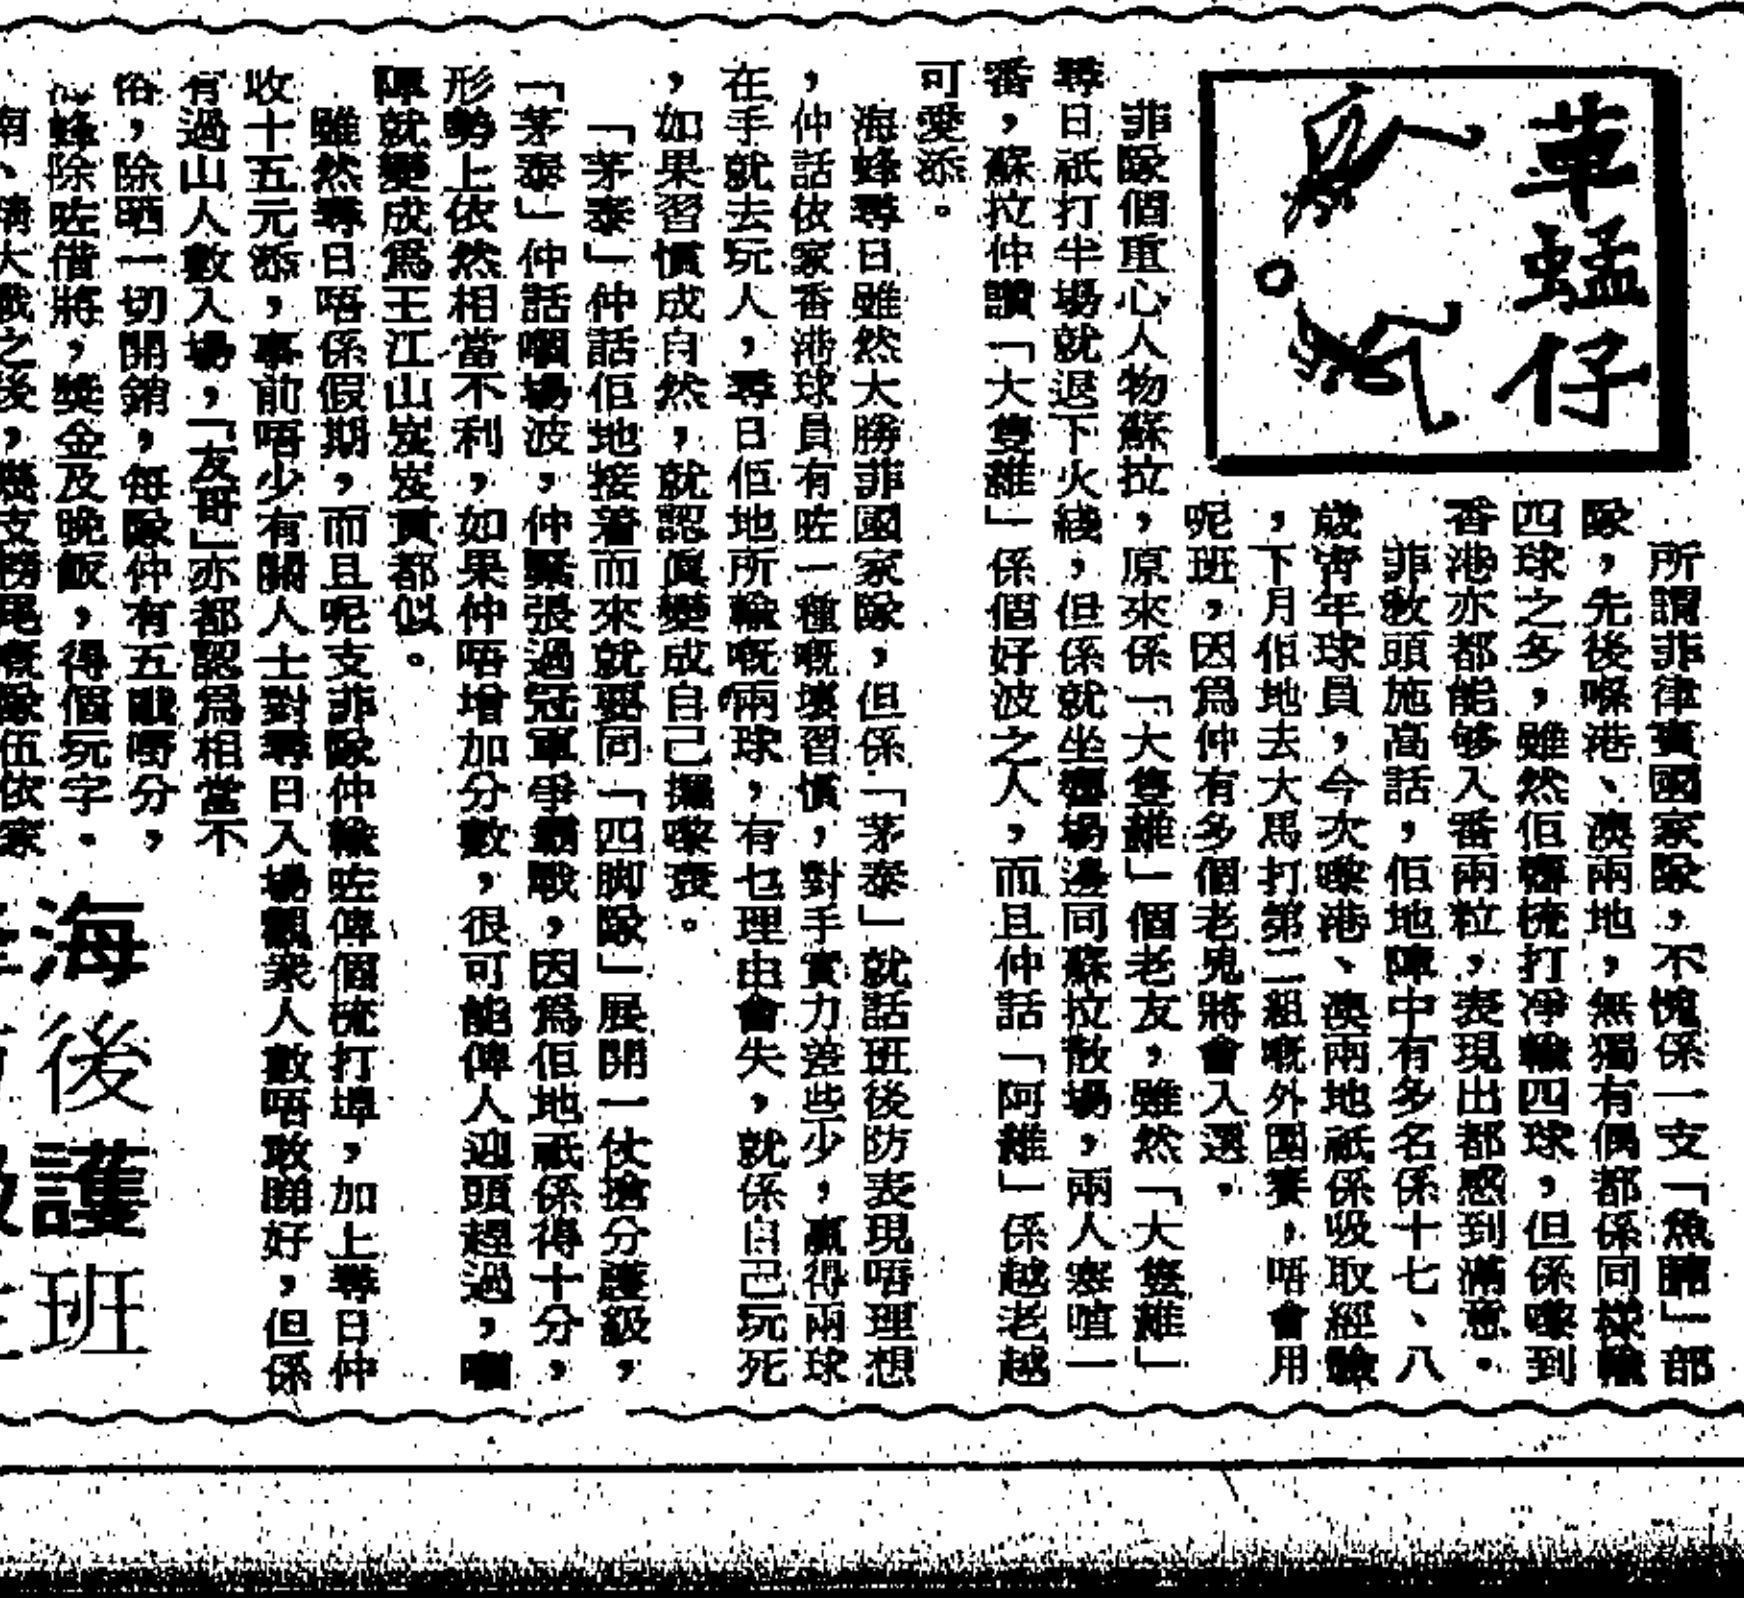 草蜢仔
所謂菲律賓國家隊，不愧係一支「魚腩」部
隊，先後喺港、澳兩地，無獨有偶都係同樣輸
四球之多，雖然佢哋梳打凈輸四球，但係嚟到
香港亦都能够入番兩粒，表現出都感到滿意。
菲教頭施高話，佢地陣中有多名係十七、八
歲靑年球員，今次嚟港、澳兩地祇係吸取經驗
，下月佢地去大馬打第二組嘅外圍賽，唔會用
呢班，因爲仲有多個老兕將會入選。
菲隊個重心人物蘇拉，原來係「大隻雜」個老友，雖然「大隻雜」
尋日祇打半塲就退下火綫，但係就坐塲邊同蘇拉散塲，兩人寒喧一
番，蘇拉仲讚「大隻雜」係個好波之人，而且仲話「阿雜」係越老越
可愛添。
海蜂尋日雖然大勝菲國家隊，但係「茅泰」就話班後防表現唔理想
，仲話依家香港球員有咗一種嘅壞習慣，對手實力差些少，贏得兩球
在手就去玩人，尋日佢地所輸嘅兩球，有乜理由會失，就係自己玩死
，如果習慣成自然，就認眞變成自己攞嚟衰。
「茅泰」仲話佢地接着而來就要同「四脚隊」展開一仗搶分護級，
「茅泰」仲話嗰塲波，仲緊張過冠軍爭霸戰，因爲佢地祇係得十分，
形勢上依然相當不利，如果仲唔增加分數，很可能俾人迎頭趕過，嗰
陣就變成爲王江山岌岌貢都似。
雖然尋日唔係假期，而且呢支菲隊仲輸咗俾個梳打埠，加上尋日仲
收十五元添，事前唔少有關人士對尋日入塲觀衆人數唔敢睇好，但係
有過山人數入塲，「友哥」亦都認爲相當不
俗，除晒一切開銷，每隊仲有五嚿嘢分，
海蜂除咗借將，獎金及晚飯，得個玩字。
海後護班